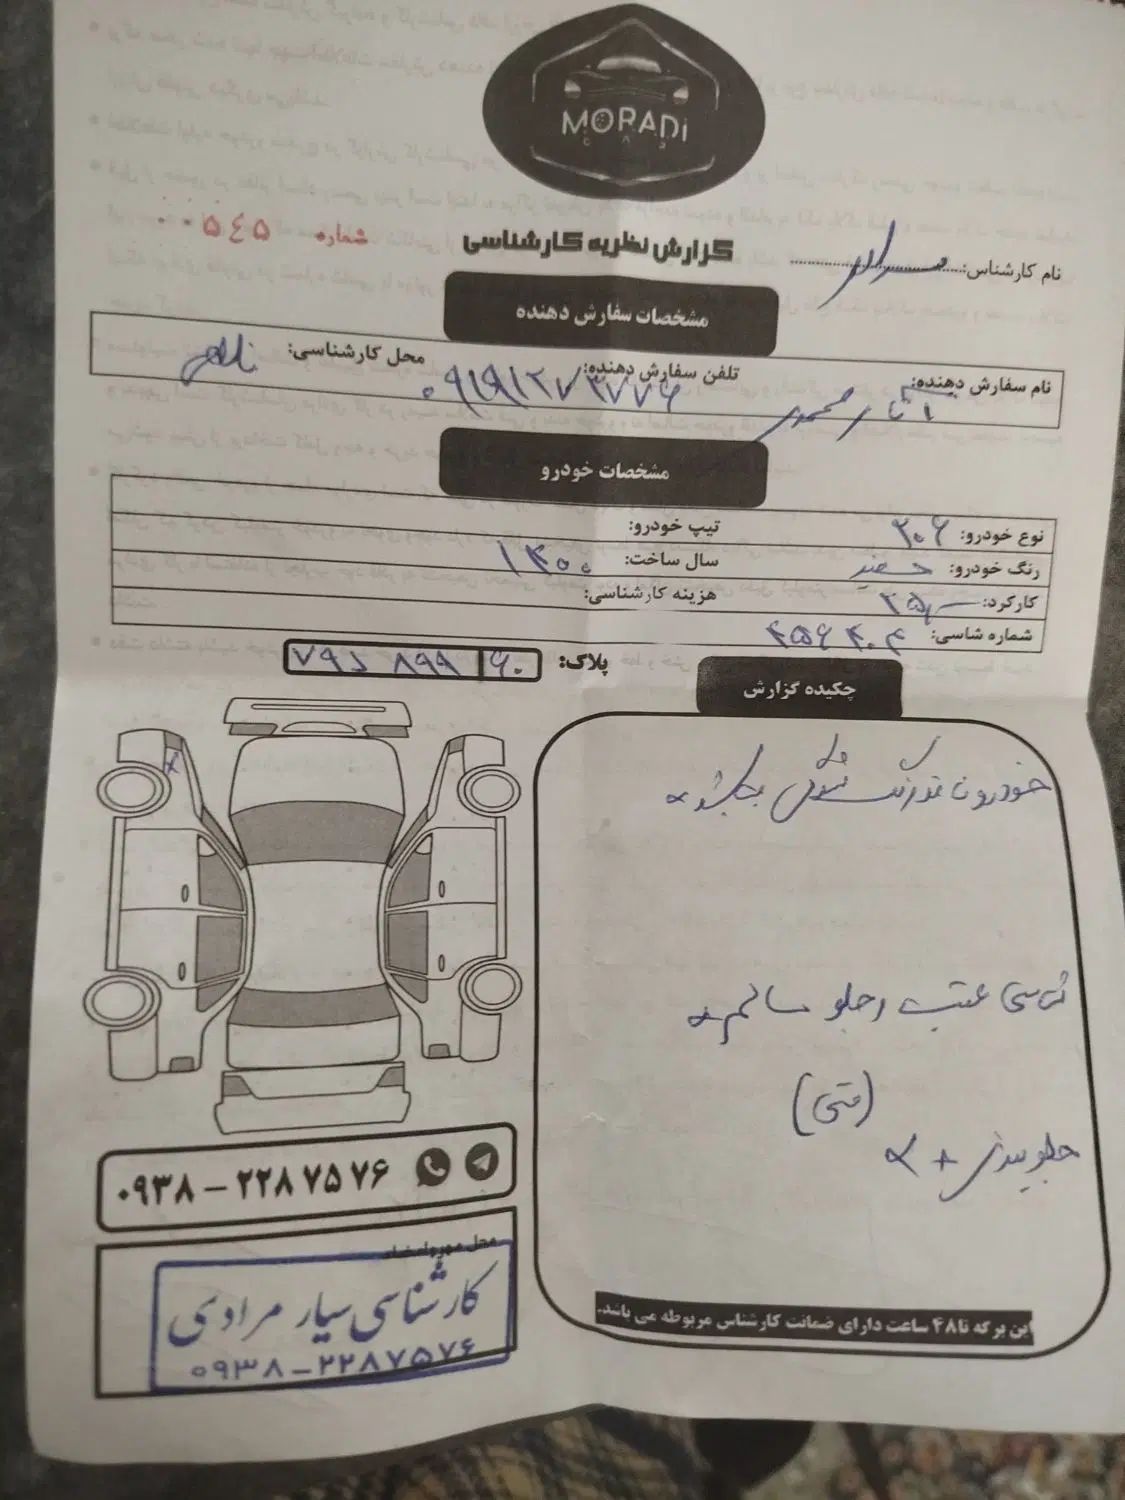 MORADI
CAR
شماره ۰۰۵۴۵
گزارش نظریه کارشناسی
نام کارشناس: مرادی
مشخصات سفارش دهنده
نام سفارش دهنده: محمدی
تلفن سفارش دهنده: ۰۹۱۹۱۲۷۳۷۷۶
محل کارشناسی:
مشخصات خودرو
نوع خودرو: ۲۰۶
تیپ خودرو:
رنگ خودرو: سفید
سال ساخت: ۱۴۰۰
کارکرد:
هزینه کارشناسی:
شماره شاسی:
پلاک: ۷۹د ۸۹۹ ۶۰
چکیده گزارش
خودرو فاقد رنگ میباشد
شاسی عقب و جلو سالم
(فنی)
جلوبندی +
۰۹۳۸ – ۲۲۸ ۷۵ ۷۶
محل مهر و امضاء
کارشناسی سیار مرادی
۰۹۳۸-۲۲۸۷۵۷۶
این برگه تا ۴۸ ساعت دارای ضمانت کارشناس مربوطه می باشد.